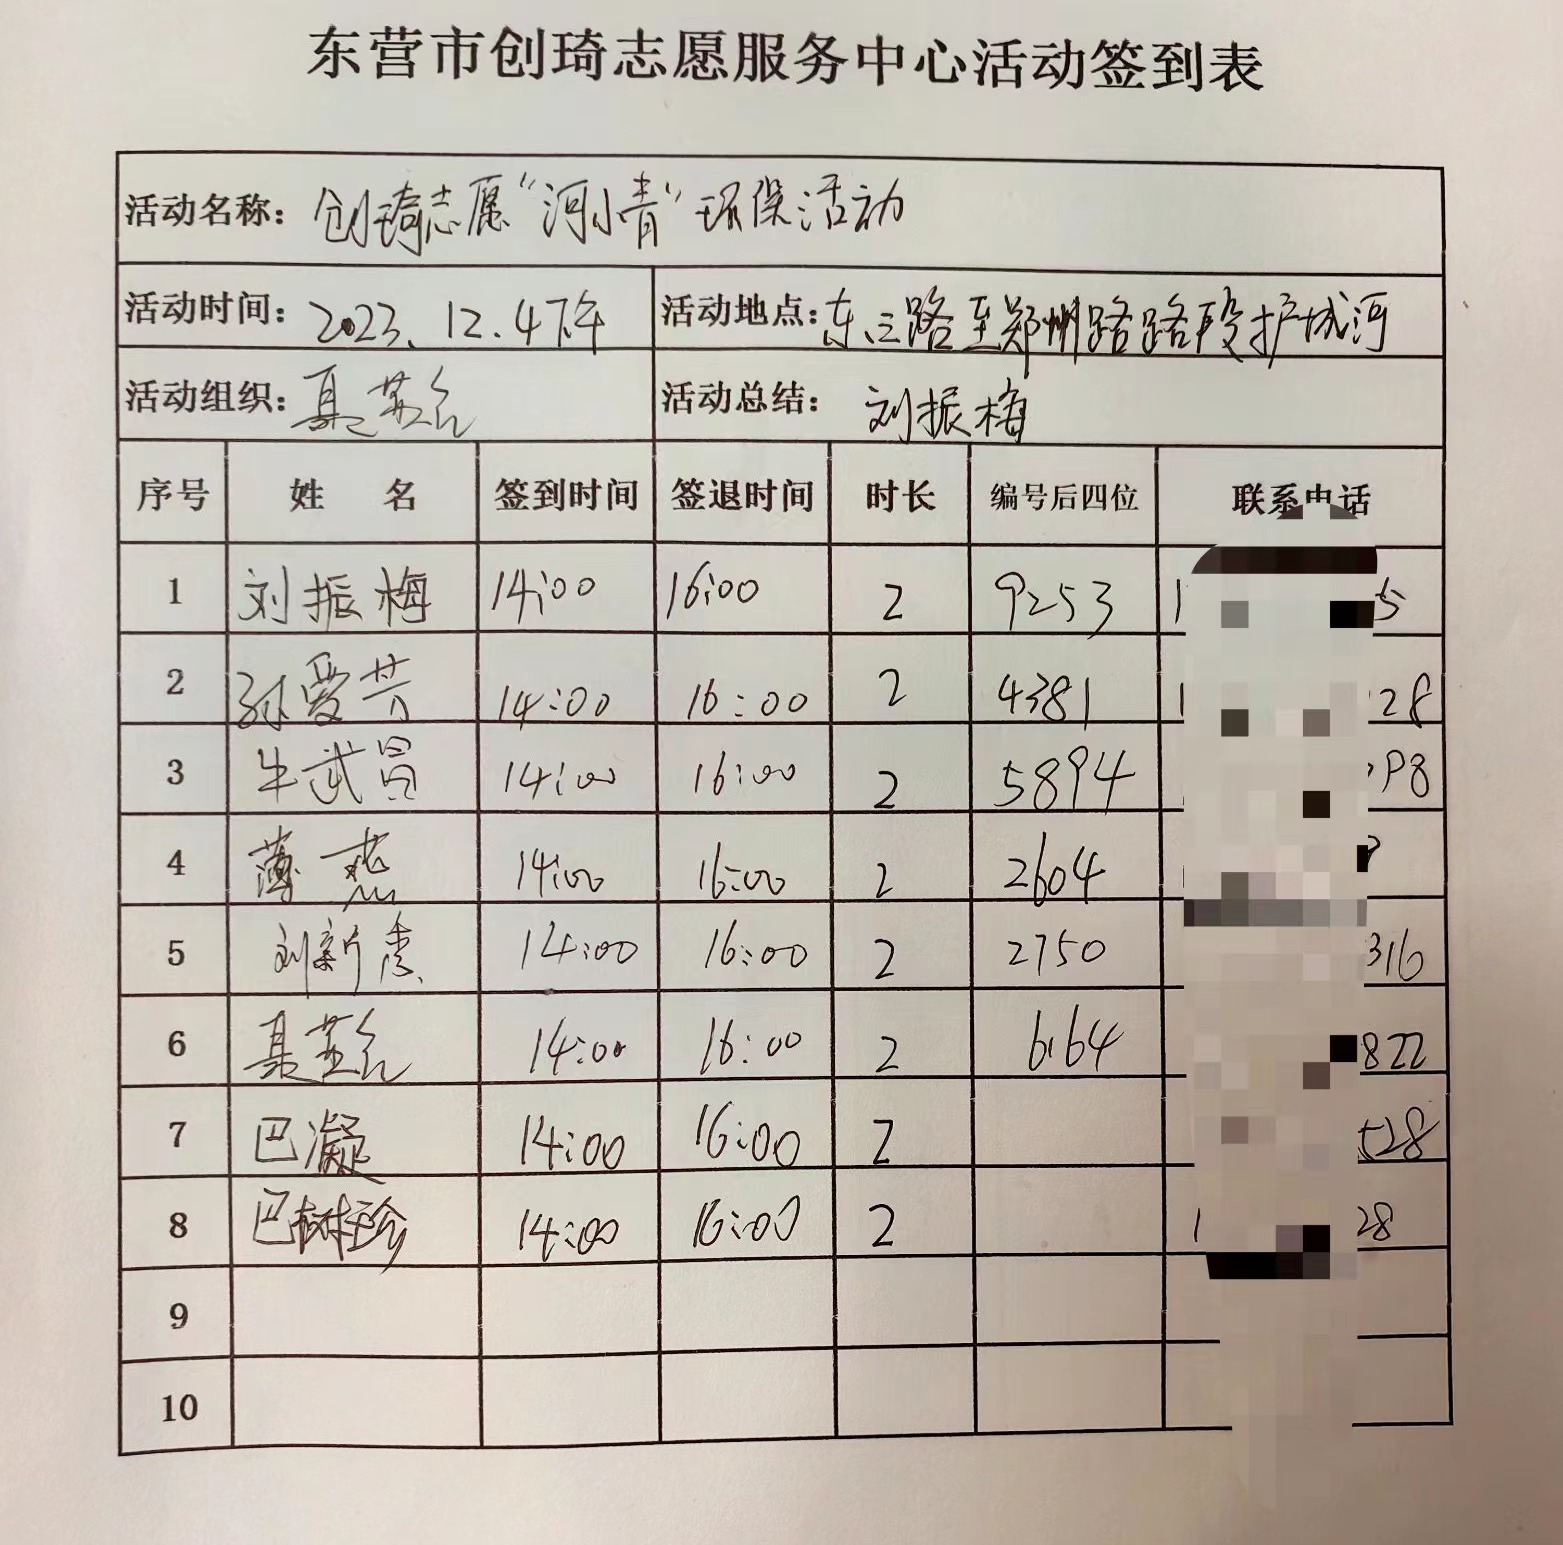 东营市创琦志愿服务中心活动签到表
活动名称: 创琦志愿“河小青”环保活动
活动时间: 2023.12.4下午 活动地点: 东三路至郑州路路段护城河
活动组织: 聂燕 活动总结: 刘振梅
序号 姓 名 签到时间 签退时间 时长 编号后四位 联系电话
1 刘振梅 14:00 16:00 2 9253 1 5
2 孙爱芳 14:00 16:00 2 4381 1 28
3 牛武昌 14:00 16:00 2 5894 98
4 薄燕 14:00 16:00 2 2604
5 刘新秀 14:00 16:00 2 2750 316
6 14:00 16:00 2 6164 822
7 巴凝 14:00 16:00 2 528
8 巴树珍 14:00 16:00 2 1 28
9
10